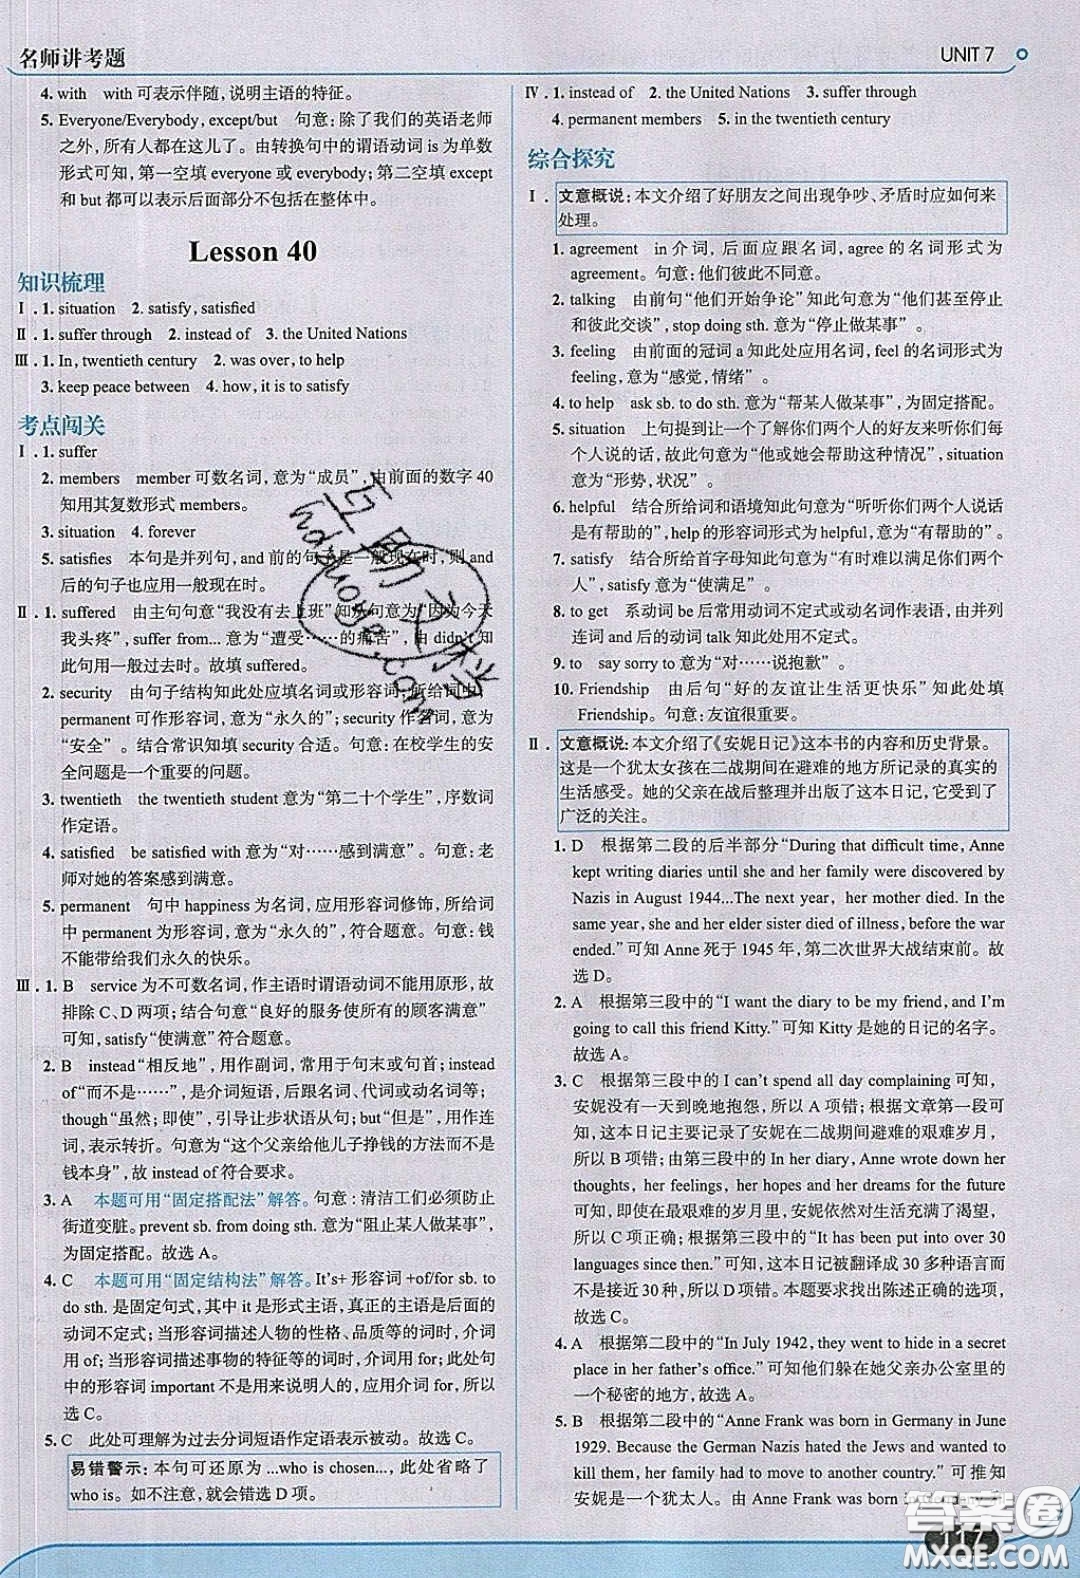 名师讲考题
UNIT 7
4. with with 可表示伴随,说明主语的特征。
5. Everyone/Everybody, except/but 句意:除了我们的英语老师
之外,所有人都在这儿了。由转换句中的谓语动词 is 为单数
形式可知,第一空填 everyone 或 everybody;第二空填 except
和 but 都可以表示后面部分不包括在整体中。
Lesson 40
知识梳理
Ⅰ. 1. situation 2. satisfy, satisfied
Ⅱ. 1. suffer through 2. instead of 3. the United Nations
Ⅲ. 1. In, twentieth century 2. was over, to help
3. keep peace between 4. how, it is to satisfy
考点闯关
Ⅰ. 1. suffer
2. members member 可数名词,意为“成员”,由前面的数字 40
知用其复数形式 members。
3. situation 4. forever
5. satisfies 本句是并列句, and 前的句子是一般现在时,则 and
后的句子也应用一般现在时。
Ⅱ. 1. suffered 由主句句意“我没有去上班”知从句意为“因为今天
我头疼”, suffer from... 意为“遭受……的痛苦”,由 didn't 知
此句用一般过去时。故填 suffered。
2. security 由句子结构知此处应填名词或形容词;所给词中,
permanent 可作形容词,意为“永久的”; security 作名词,意为
“安全”。结合常识知填 security 合适。句意:在校学生的安
全问题是一个重要的问题。
3. twentieth the twentieth student 意为“第二十个学生”,序数词
作定语。
4. satisfied be satisfied with 意为“对……感到满意”。句意:老
师对她的答案感到满意。
5. permanent 句中 happiness 为名词,应用形容词修饰,所给词
中 permanent 为形容词,意为“永久的”,符合句意。句意:钱
不能带给我们永久的快乐。
Ⅲ. 1. B service 为不可数名词,作主语时谓语动词不能用原形,故
排除 C、D 两项;结合句意“良好的服务使所有的顾客满意”
可知, satisfy“使满意”符合题意。
2. B instead“相反地”,用作副词,常用于句末或句首; instead
of“而不是……”,是介词短语,后跟名词、代词或动名词等;
though“虽然;即使”,引导让步状语从句; but“但是”,用作连
词,表示转折。句意为“这个父亲给他儿子挣钱的方法而不是
钱本身”,故 instead of 符合要求。
3. A 本题可用“固定搭配法”解答。句意:清洁工们必须防止
街道变脏。prevent sb. from doing sth. 意为“阻止某人做某事”,
为固定搭配。故选 A。
4. C 本题可用“固定结构法”解答。It's+ 形容词 +of/for sb. to
do sth. 是固定句式,其中 it 是形式主语,真正的主语是后面的
动词不定式;当形容词描述人物的性格、品质等的词时,介词
用 of;当形容词描述事物的特征等的词时,介词用 for;此处句
中的形容词 important 不是用来说明人的,应用介词 for,所以
选 C。
5. C 此处可理解为过去分词短语作定语表示被动。故选 C。
易错警示:本句可还原为 ...who is chosen...,此处省略了
who is。如不注意,就会错选 D 项。
Ⅳ. 1. instead of 2. the United Nations 3. suffer through
4. permanent members 5. in the twentieth century
综合探究
Ⅰ. 文意概说:本文介绍了好朋友之间出现争吵、矛盾时应如何来
处理。
1. agreement in 介词,后面应跟名词, agree 的名词形式为
agreement。句意:他们彼此不同意。
2. talking 由前句“他们开始争论”知此句意为“他们甚至停止
和彼此交谈”, stop doing sth. 意为“停止做某事”。
3. feeling 由前面的冠词 a 知此处应用名词, feel 的名词形式为
feeling,意为“感觉,情绪”。
4. to help ask sb. to do sth. 意为“帮某人做某事”,为固定搭配。
5. situation 上句提到让一个了解你们两个人的好友来听你们
每个人说的话,故此句意为“他或她会帮助这种情况”, situation
意为“形势,状况”。
6. helpful 结合所给词和语境知此句意为“听听你们两个人说话
是有帮助的”, help 的形容词形式为 helpful,意为“有帮助的”。
7. satisfy 结合所给首字母知此句意为“有时难以满足你们两个
人”, satisfy 意为“使满足”。
8. to get 系动词 be 后常用动词不定式或动名词作表语,由并列
连词 and 后的动词 talk 知此处用不定式。
9. to say sorry to 意为“对……说抱歉”。
10. Friendship 由后句“好的友谊让生活更快乐”知此处填
Friendship。句意:友谊很重要。
Ⅱ. 文意概说:本文介绍了《安妮日记》这本书的内容和历史背景。
这是一个犹太女孩在二战期间在避难的地方所记录的真实的
生活感受。她的父亲在战后整理并出版了这本日记,它受到了
广泛的关注。
1. D 根据第二段的后半部分“During that difficult time, Anne
kept writing diaries until she and her family were discovered by
Nazis in August 1944...The next year, her mother died. In the
same year, she and her elder sister died of illness, before the war
ended.” 可知 Anne 死于 1945 年,第二次世界大战结束前。故
选 D。
2. A 根据第三段中的“I want the diary to be my friend, and I'm
going to call this friend Kitty.”可知 Kitty 是她的日记的名字。
故选 A。
3. C 根据第三段中的 I can't spend all day complaining 可知,
安妮没有一天到晚地抱怨,所以 A 项错;根据文章第一段可
知,这本日记主要记录了安妮在二战期间避难的艰难岁月,
所以 B 项错;由第三段中的 In her diary, Anne wrote down her
thoughts, her feelings, her hopes and her dreams for the future
可知,即使在最艰难的岁月里,安妮依然对生活充满了渴望,
所以 C 项正确;根据第三段中的“It has been put into over 30
languages since then.”可知,这本日记被翻译成 30 多种语言而
不是接近 30 种,所以 D 项错。本题要求找出陈述正确的选项,
故选 C。
4. A 根据第二段中的“In July 1942, they went to hide in a secret
place in her father's office.”可知他们躲在她父亲办公室里的
一个秘密的地方,故选 A。
5. B 根据第二段中的“Anne Frank was born in Germany in June
1929. Because the German Nazis hated the Jews and wanted to
kill them, her family had to move to another country.”可推知
安妮是一个犹太人。由 Anne Frank was born in Germany in
117
互助文档
hdzuoye.com
答案圈
MXQE.COM